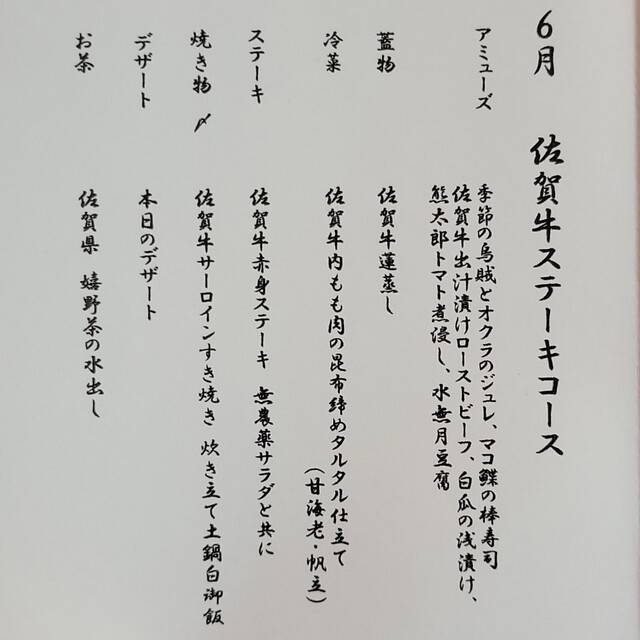 6月 佐賀牛ステーキコース
アミューズ
季節の烏賊とオクラのジュレ、マコ鰈の棒寿司
佐賀牛出汁漬けローストビーフ、白瓜の浅漬け、
熊太郎トマト煮浸し、水無月豆腐
蓋物 佐賀牛蓮蒸し
冷菜 佐賀牛内もも肉の昆布締めタルタル仕立て
(甘海老・帆立)
ステーキ 佐賀牛赤身ステーキ 無農薬サラダと共に
焼き物 〆 佐賀牛サーロインすき焼き 炊き立て土鍋白御飯
デザート 本日のデザート
お茶 佐賀県 嬉野茶の水出し